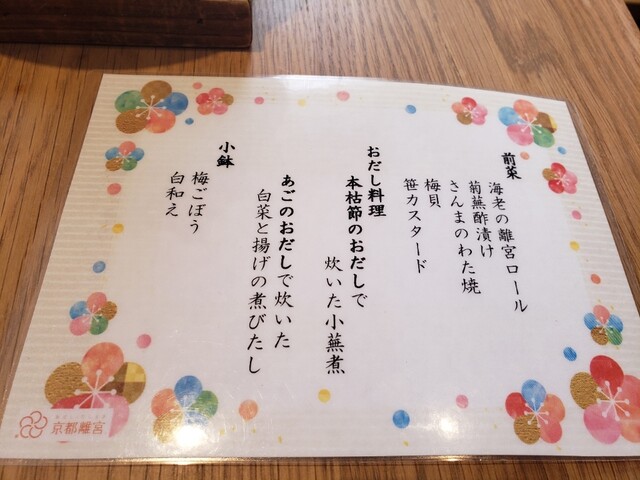 前菜
海老の離宮ロール
菊蕪酢漬け
さんまのわた焼
梅貝
笹カスタード
おだし料理
本枯節のおだしで
炊いた小蕪煮
あごのおだしで炊いた
白菜と揚げの煮びたし
小鉢
梅ごぼう
白和え
京都離宮